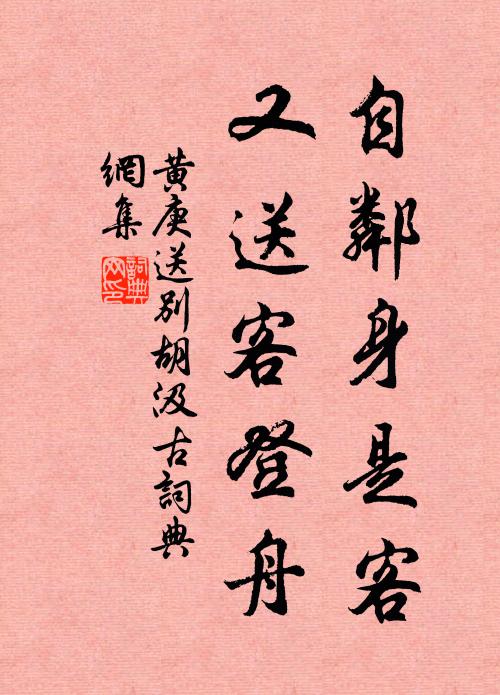 自鄰身是客
又送客登舟
黄庚送别胡汲古詞典
網集
詞典
网印